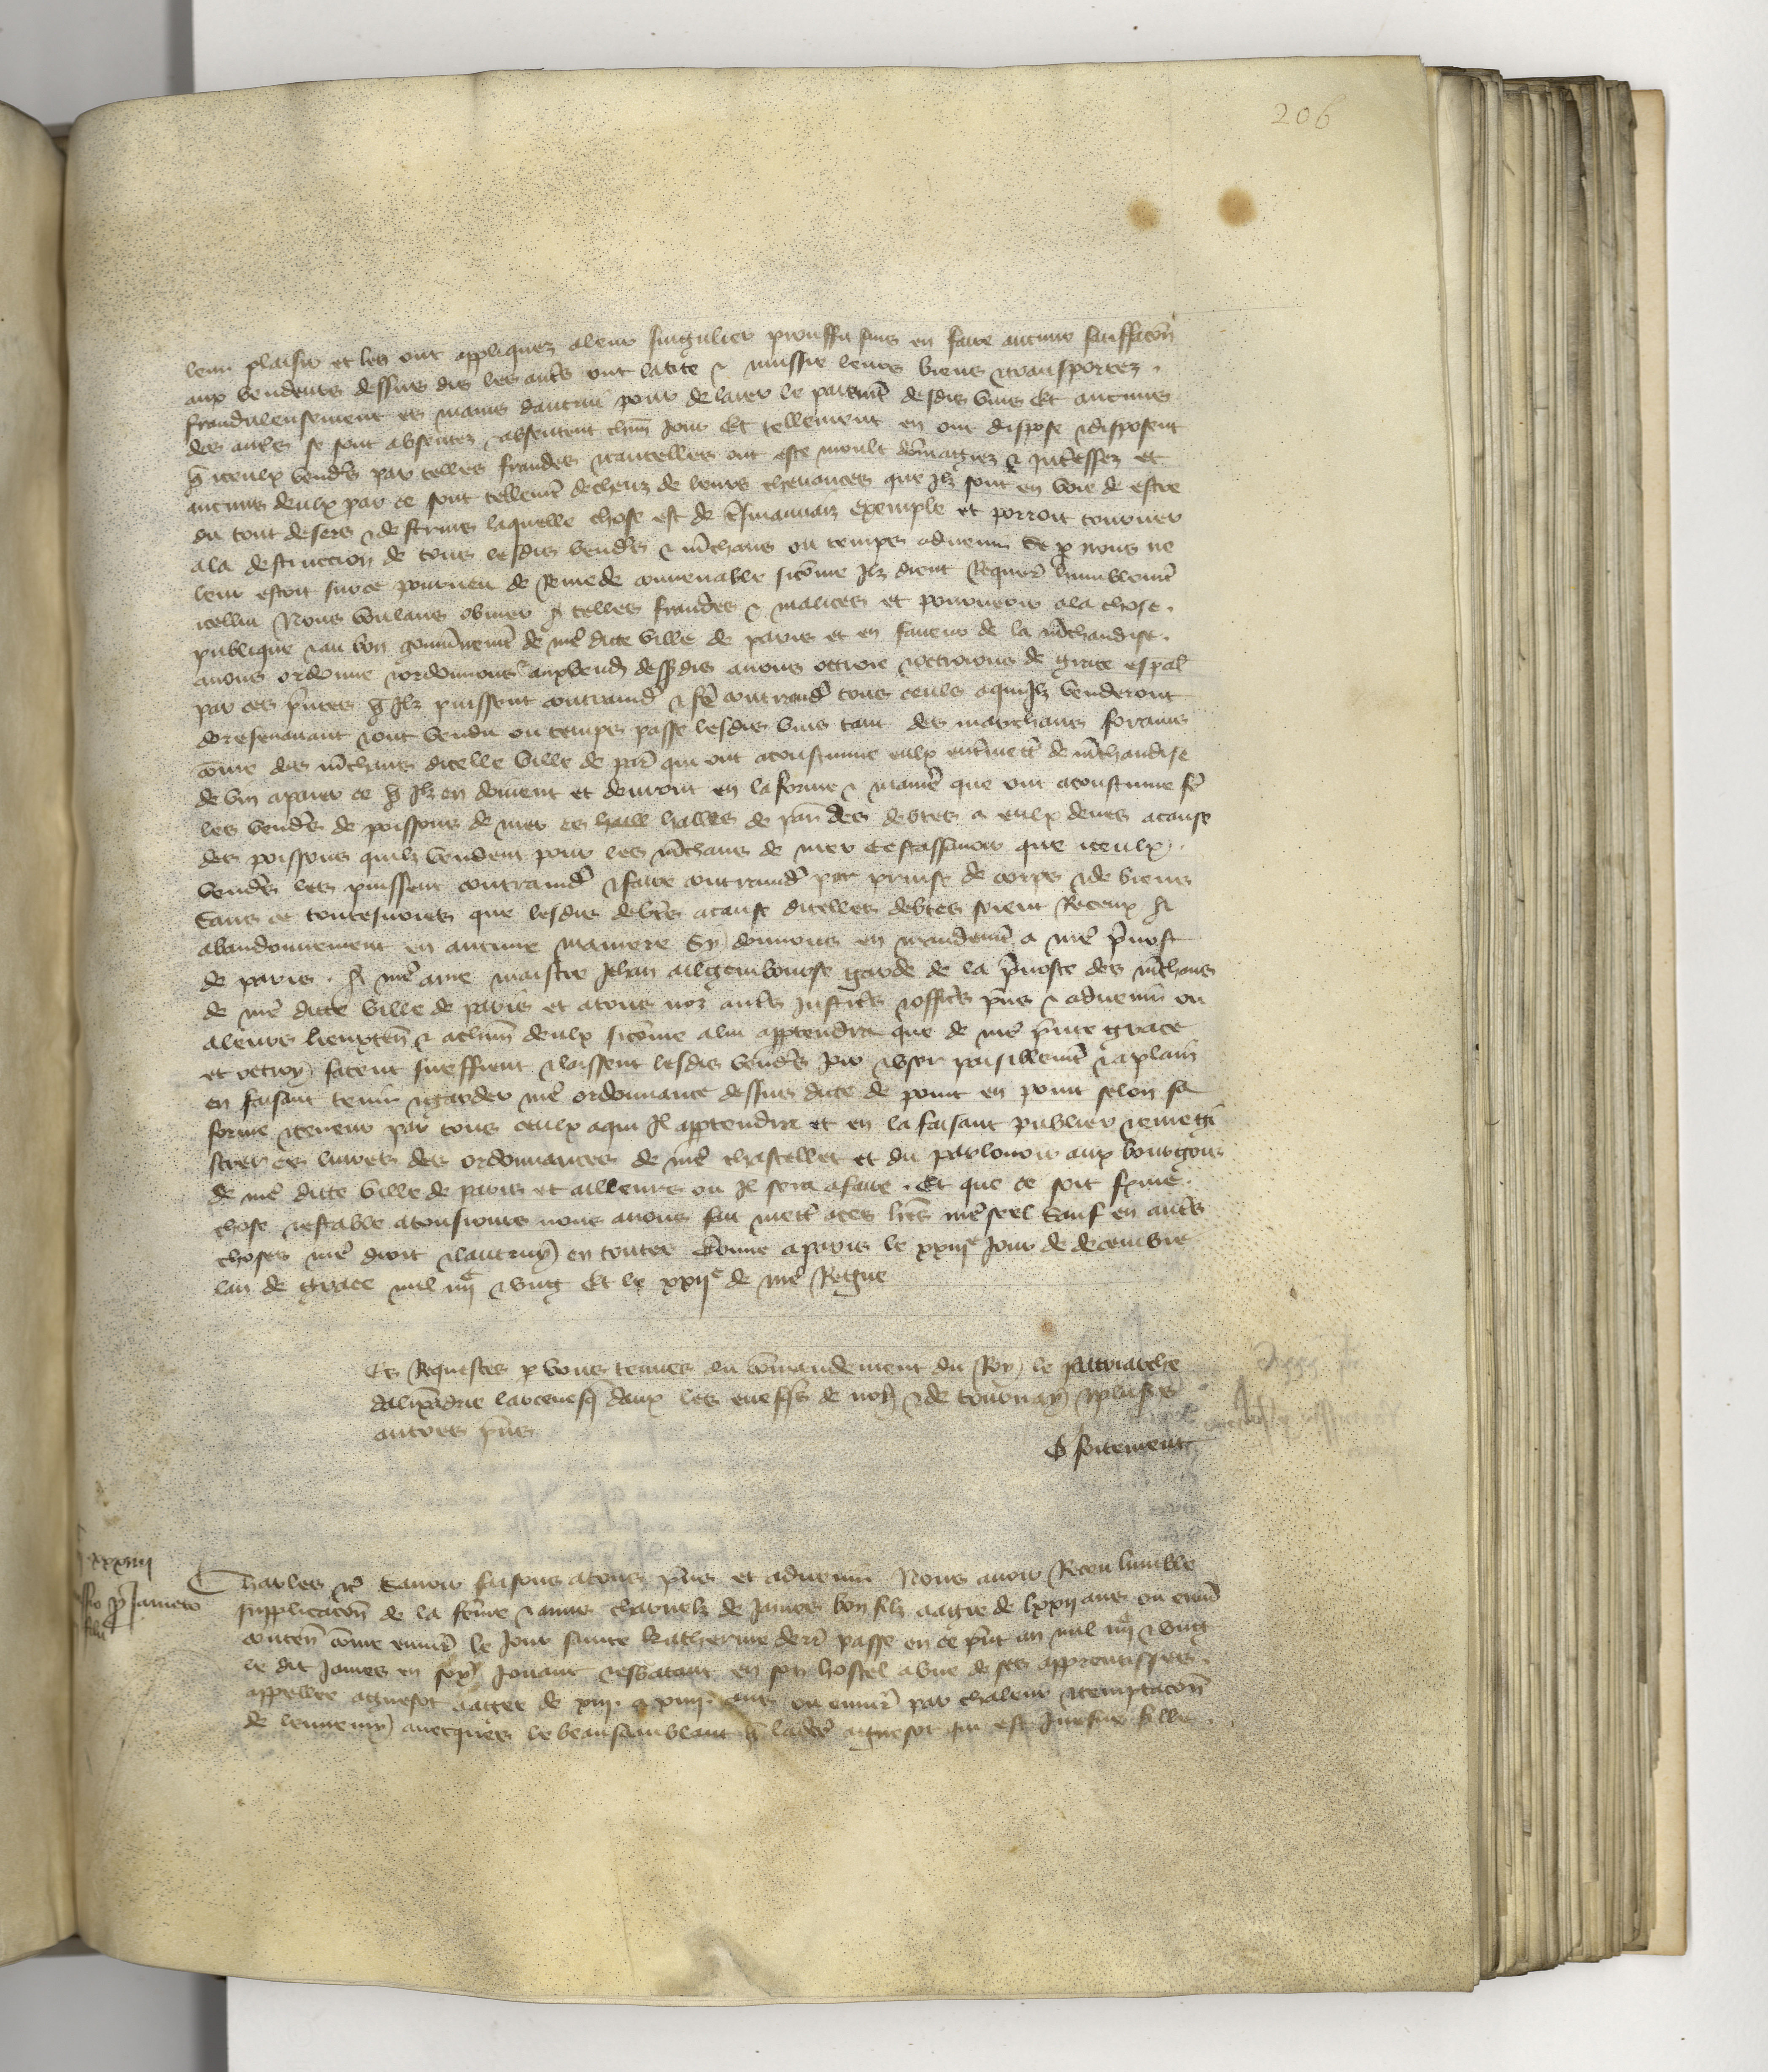 206
leur plaisir et les ont appliquez a leur singulier prouffit sans en faire aucune satisfacon
aux vendeurs dessus dis les autres ont latite & mussie leurs biens & transportez .
fraudulensement es mains dautrui pour delaier le paiement desdis vins Et aucuns
des autres se sont absentez & absentent chun jour Et tellement en ont dispose & disposent
q iceulx vendrs par telles fraudes & cautelles ont este moult dommagiez & interessez et
aucuns deulx par ce sont tellemt decheuz de leurs chevances que Ilz sont en voie de estre
du tout desers & destruis laquelle chose est de tsmauvaiz exemple et porroit tourner
a la destruccion de tous lesdis vendrs & mchans ou temps advenir Se p nous ne
leur estoit sur ce pourveu de Remede convenable sicome Ilz dient Requer humblemt
icellui Nous voulans obvier a telles fraudes & malices et pourveoir a la chose .
publique & au bon gouvnemt de nre dicte ville de paris et en faveur de la mchandise .
avons ordonne & ordonnons & aux vend dessdis avons octroie & octroions de grace espal
par ces pntes q Ilz puissent contraind & fe contraind tous ceuls a qui Ilz venderont
doresenavant & ont vendu ou temps passe lesdis vins tant des marchans forains
come des mchans dicelle ville de par qui ont acoustume eulx entmett de mchandise
de vin a paier ce q Ilz en doivent et devront en la forme & maniere que ont acoustume fe
les vendrs de poissons de mer es halles de par des debtes a eulx deues a cause
des poissons quilz vendent pour les mchans de mer Cestassavoir que iceulx .
vendrs les puissent contraind & faire contraind par prinse de corps & de biens
Sans ce toutesvoies que lesdis debtrs a cause dicelles debtes soient Receux a
abandonnement en aucune maniere Sy donnons en mandemt a nre pvost
de paris . A nre ame maistre Jehan garde de la pvoste des mchans
de nre dicte ville de paris et a tous noz autrs justicrs & officrs pns & advenir ou
a leurs lieuxten & a chun deulx sicome a lui apptendra que de nre pnte grace
et octroy facent sueffrent & laissent lesdis vendrs joir & user paisiblemt & a plain
en faisant tenir & garder nre ordonnance dessus dicte de point en point selon sa
forme & teneur par tous ceulx a qui Il apptendra et en la faisant publier & enregi
strer es livres des ordonnances de nre chastellet et du parlouoir aux bourgois
de nre dicte ville de paris et ailleurs ou Il sera a faire . Et que ce soit ferme .
chose & estable a tousiours nous avons fait mett a ces lres nre seel Sauf en autrs
choses nre droit & lautruy en toutes Donne a paris le xxiije jour de decembre
lan de grace mil iiijc & ung Et le xxije de nre Regne
Es Requestes p vous tenues du comandement du Roy le patriarche
dalixandrie larcevesq daux les evesqs de noy & de tournay & pluss
autres pns
G fortement
xxxiiij
Charles &c Savoir faisons a tous pns et advenir Nous avoir Receu lumble
supplicacon de la feme & amis charnelz de James bon filz aagie de lxxij ans ou environ
conten come environ le jour sainte katherine derr passe en ce pnt an mil iiijc & ung
le dit James en soy jouant & esbatant en son hostel a une de ses apprentisses .
appellee agnesot aagee de xiij . a xiiij . ans ou environ par chaleur & temptacon
de lennemy avecques le beau samblant q ladce agnesot qui est jeusne fille .